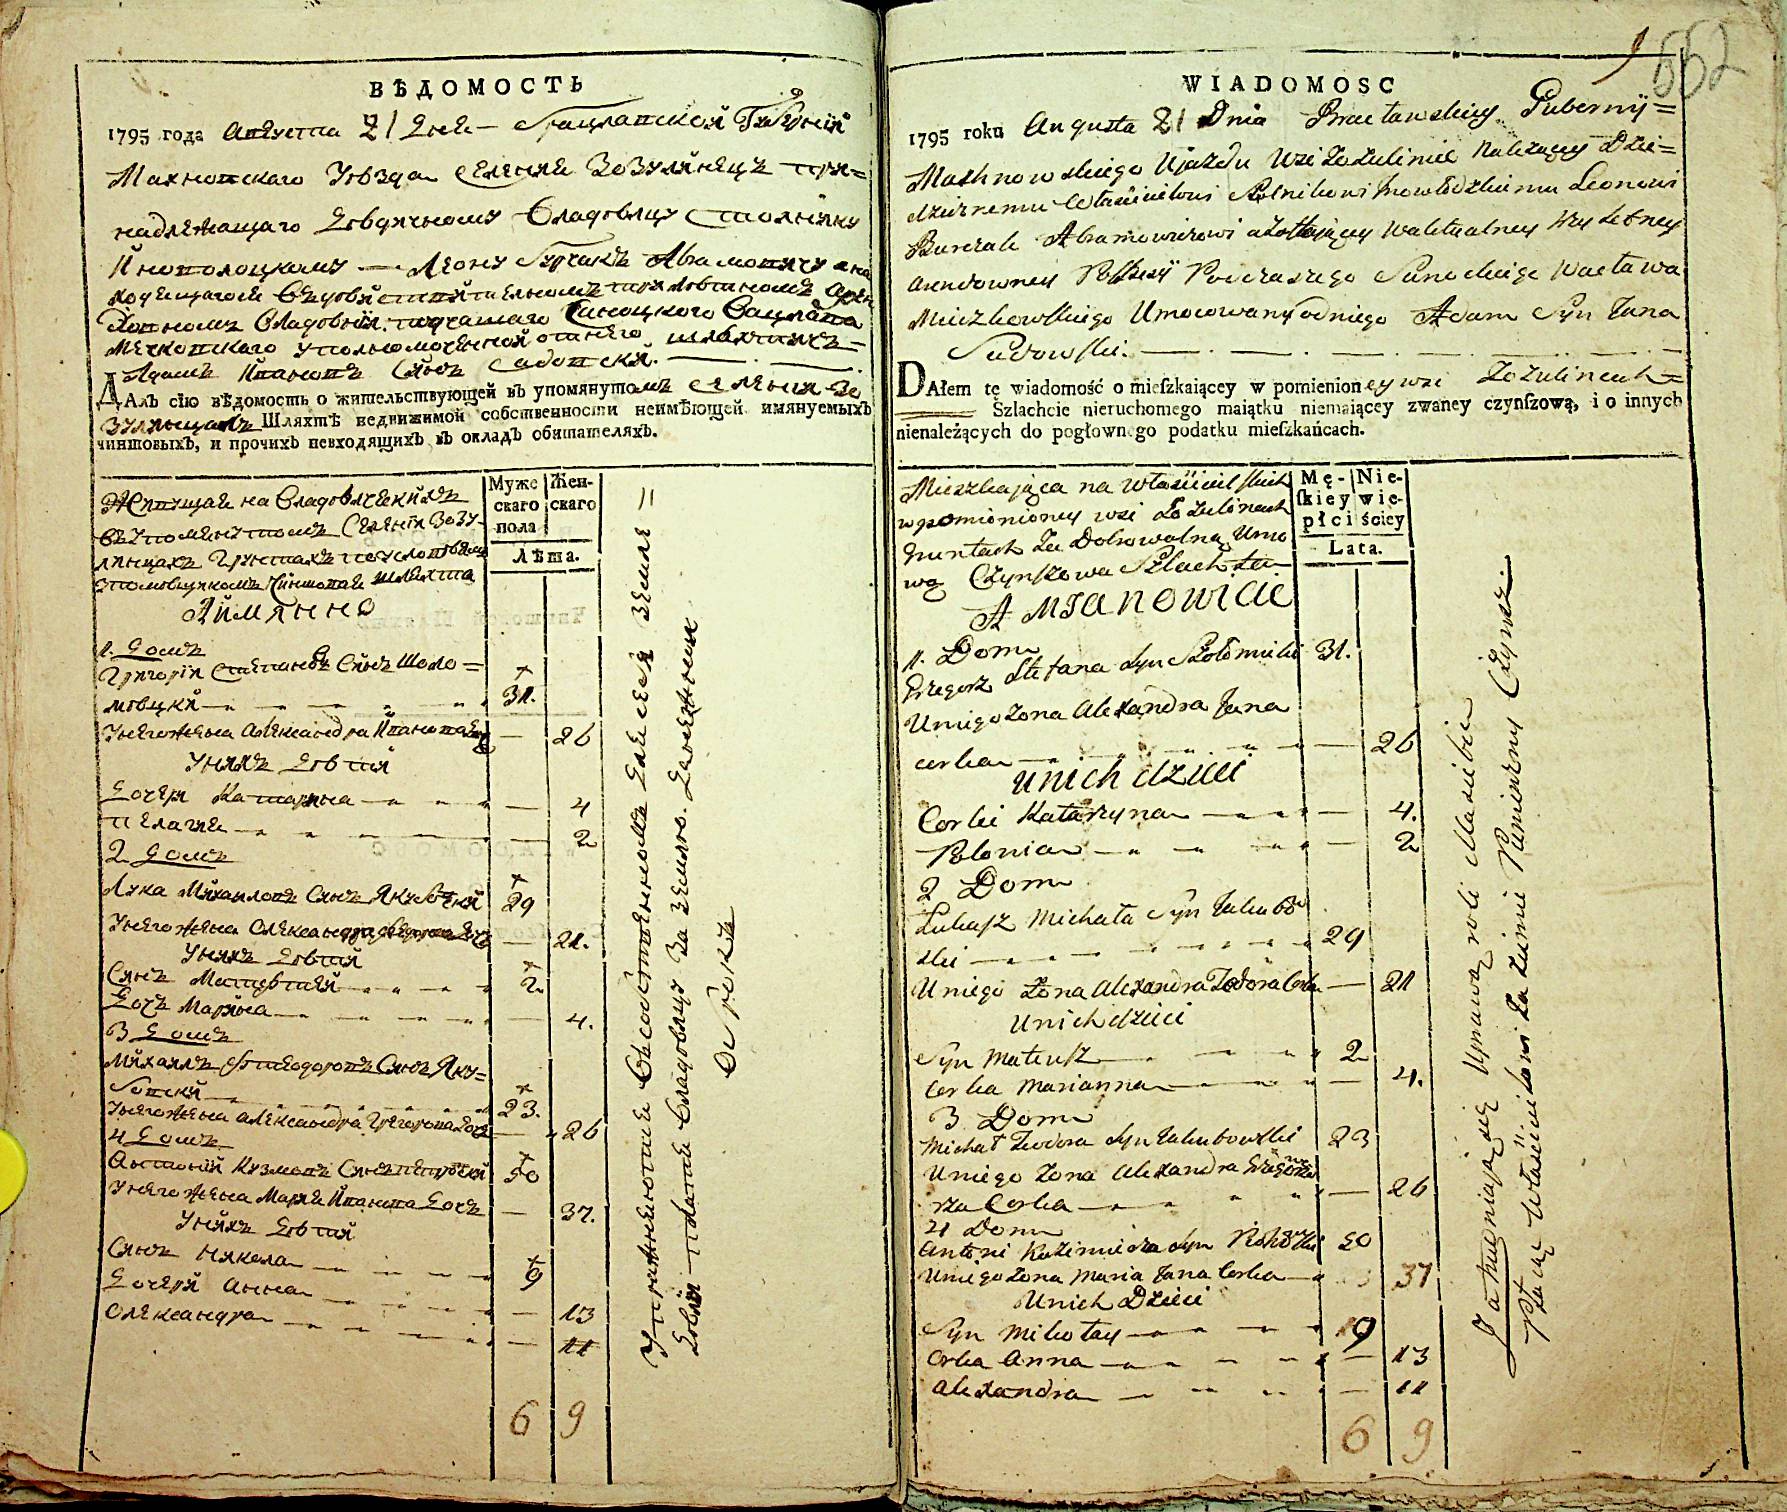 ВѢДОМОСТЬ
1795 года Августа 21 дня Брацлавской Губерніи
Махновскаго Уѣзда селенія Зозулинецъ при=
надлежащаго Владѣлцу Столнику
Леону Абрамовичу
Владѣніи Саноцкого Вацлава
Мечковскаго
Адамъ Ивановъ Сынъ Садовски.
ДАлъ сію вѣдомость о жительствующей въ упомянутомъ селеніи Зо
зулинцахъ Шляхтѣ недвижимой собственности неимѣющей имянуемыхъ
чиншовыхъ, и прочихъ невходящихъ въ окладъ обитателяхъ.
Живущая на Владѣлческихъ
въ упомянутомъ селеніи Зозу-
линцахъ Грунтахъ
Чиншовая шляхта
А имянно
Муже
скаго
пола
Жен-
скаго
Лѣта.
1. Домъ
Григорій Степановъ Сынъ Шоло=
мѣцки 31.
У него жена Александра Иванова 26
У нихъ дѣти
Дочери Катарина 4
Пелагия 2
2 Домъ
Лука Михаиловъ Сынъ Якубовский 29
У него жена Александра Федорова дочь 21.
У нихъ дѣти
Сынъ Матвѣй 2
Дочь Марияна 4.
3 Домъ
Михаилъ Феодоровъ Сынъ Яку=
бовски 23.
У него жена Александра Григорова дочь 26
4 Домъ
Антоний Кузмовъ Сынъ 50
У него жена Мария Иванова дочь 37.
У нихъ дѣти
Сынъ Никола 9
Дочери Анна 13
Олександра 11
6 9
Упражняются въ собственномъ землѣ =
владѣлцу за землю.
оброкъ
552
WIADOMOSC
1795 roku Augusta 21 Dnia Bracławskiey Gubernÿ=
Machnowskiego Ujazdu Wsi Zozuliniec Należącey Dzie=
dzicznemu Właścicielowi Stolnikowi Inowłodzkiemu Leonowi
Burczak Abramowiczowi a zostającey w aktualney trzyletney
arendowney Possesyi Podczaszego Sanockiego Wacława
Mieczkowskiego Umocowany od niego Adam Syn Jana
Sadowski.
DAłem tę wiadomość o mieſzkaiącey w pomienioney wsi Zozulincach=
Szlachcie nieruchomego maiątku niemaiącey zwaney czynſzową, i o innych
nienależących do pogłownego podatku mieſzkańcach.
Mieszkająca na właścicielskich
w pomienioney wsi Zozulincach
Gruntach za Dobrowolną Umo
wą Czynszowa Szlachta
A Mianowicie
Mę-
ſkiey
płci
Nie-
wie-
ściey
Lata.
1. Dom
Grzegorz Stefana syn Szołomicki 31.
U niego żona Alexandra Jana
corka 26
U nich dzieci
Corki Katarzyna 4.
Polonia 2
2 Dom
Łukasz Michała Syn Jakubow
ski 29
U niego żona Alexandra Todora Corka 21
U nich dzieci
Syn Mateusz 2
Corka Marianna 4.
3 Dom
Michał Teodora syn Jakubowski 23
U niego żona Alexandra Grzego
rza Corka 26
4 Dom
Antoni Kazimierza syn 50
U niego żona Maria Jana Corka 37
U nich Dzieci
Syn Mikołay 9
Corka Anna 13
Alexandra 11
6 9
Zatrudniają się Uprawą roli
Płacąc Właścicielowi za ziemię Pieniężny Czynsz.